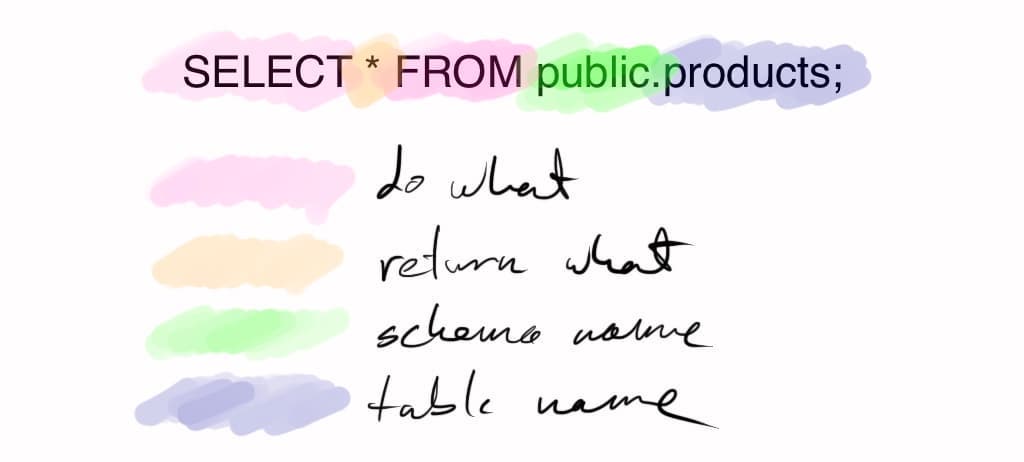 SELECT * FROM public.products;
do what
return what
schema name
table name